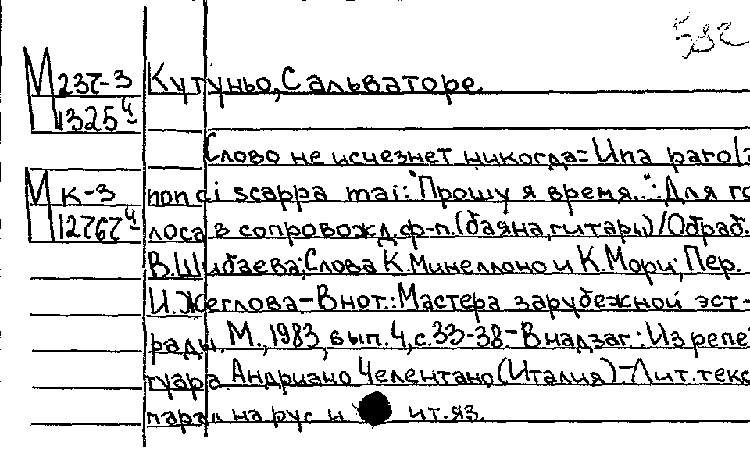 М 237-3 Кутуньо, Сальваторе.
1325ч
Слово не исчезнет никогда=Una parola
М К-3 non ci scappa mai: "Прошу я время..": Для го-
12767ч лоса в сопровожд. ф-п. (баяна, гитары)/Обраб.
В. Шибаева; Слова К. Минеллоно и К. Мори; Пер.
И. Жеглова-В нот.: Мастера зарубежной эст-
рады. М., 1983, вып. 4, с. 33-38.-В надзаг.: Из репе
туара Андриано Челентано (Италия).-Лит. текс
парал на рус и ит. яз.